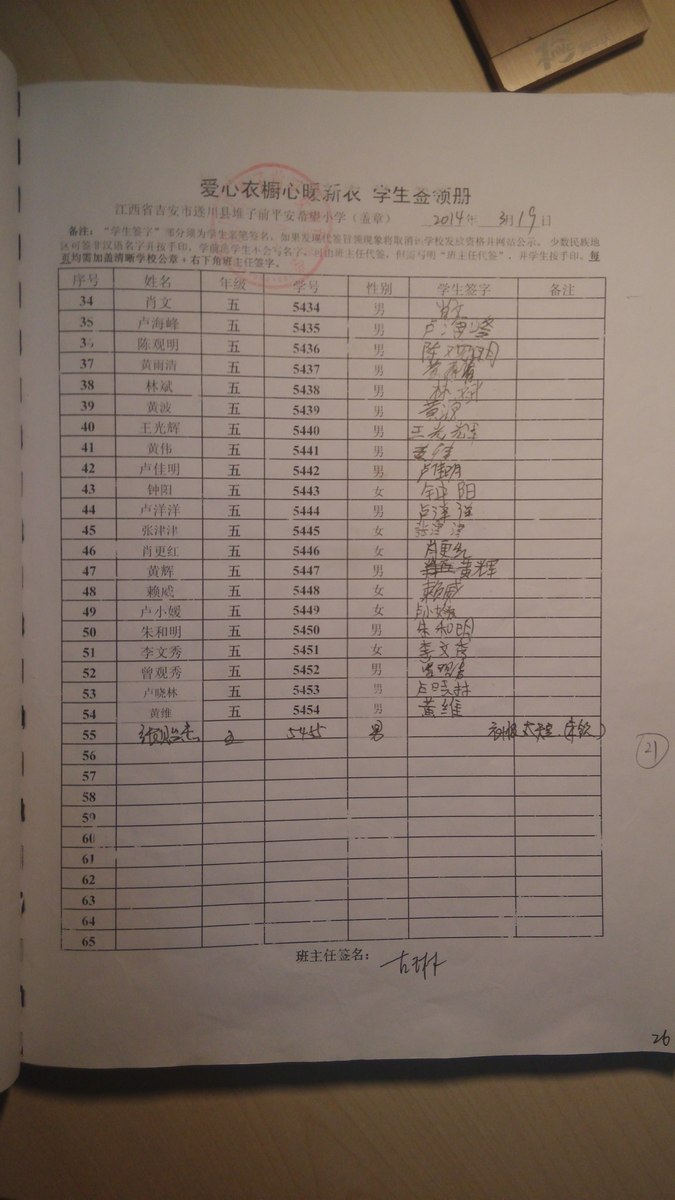 爱心衣橱心暖新衣 学生签领册
江西省吉安市遂川县堆子前平安希望小学（盖章） 2014年 3月19日
备注："学生签字"部分须为学生亲笔签名，如果发现代签冒领现象将取消该学校发放资格并网站公示。少数民族地
区可签非汉语名字并按手印。学前班学生不会写名字，可由班主任代签，但需写明"班主任代签"，并学生按手印。每
页均需加盖清晰学校公章+右下角班主任签字。
序号 姓名 年级 学号 性别 学生签字 备注
34 肖文 五 5434 男 肖文
35 卢海峰 五 5435 男 卢海峰
36 陈观明 五 5436 男 陈观明
37 黄雨清 五 5437 男 黄雨清
38 林斌 五 5438 男 林斌
39 黄波 五 5439 男 黄波
40 王光辉 五 5440 男 王光辉
41 黄伟 五 5441 男 黄伟
42 卢佳明 五 5442 男 卢佳明
43 钟阳 五 5443 女 钟阳
44 卢洋洋 五 5444 男 卢洋洋
45 张津津 五 5445 女 张津津
46 肖更红 五 5446 女 肖更红
47 黄辉 五 5447 男 黄辉
48 赖威 五 5448 女 赖威
49 卢小媛 五 5449 女 卢小媛
50 朱和明 五 5450 男 朱和明
51 李文秀 五 5451 女 李文秀
52 曾观秀 五 5452 男 曾观秀
53 卢晓林 五 5453 男 卢晓林
54 黄维 五 5454 男 黄维
55 五 5455 男
21
56
57
58
59
60
61
62
63
64
65
班主任签名：
26